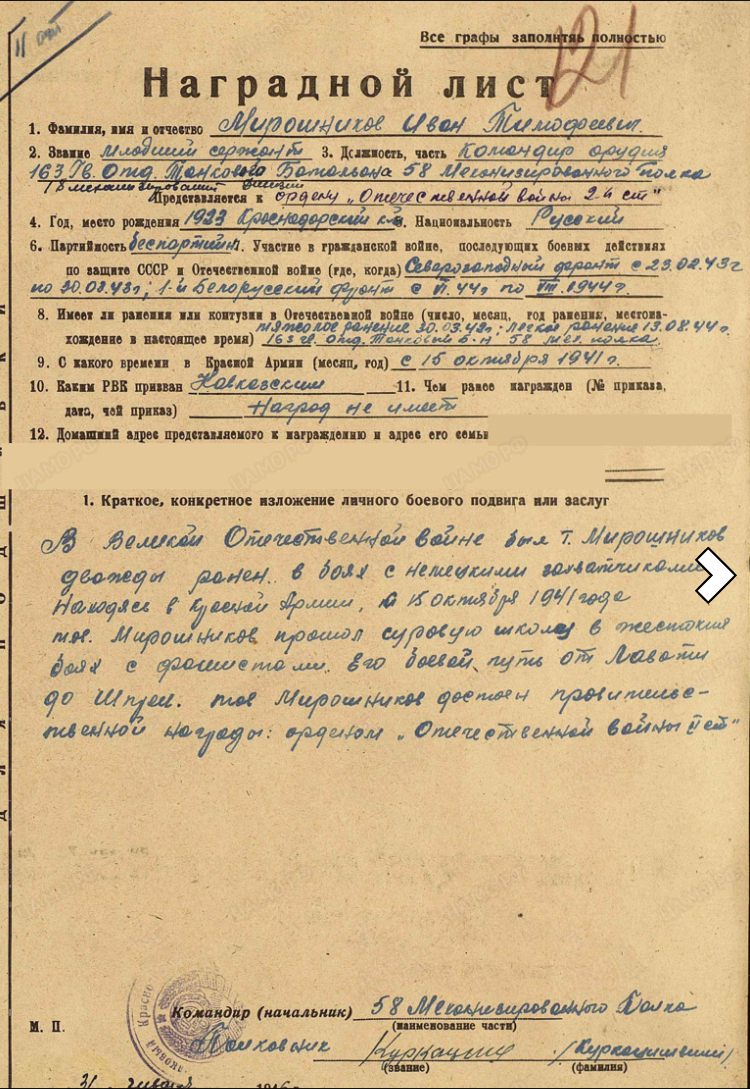 11 
Все графы заполнять полностью
121
Наградной лист
1. Фамилия, имя и отчество Мирошников Иван Тимофеевич
2. Звание младший сержант 3. Должность, часть Командир орудия
163 Гв. Отд. Танкового Батальона 58 Механизированного Полка
Представляется к ордену „Отечественной войны 2-й ст"
4. Год, место рождения 1923 Краснодарский кй. Национальность Русский
6. Партийность беспартийн. Участие в гражданской войне, последующих боевых действиях
по защите СССР и Отечественной войне (где, когда) Северозападный фронт с 23.02.43г
по 30.03.43г; 1-й Белорусский фронт с VI.44г по VIII.1944г.
8. Имеет ли ранения или контузии в Отечественной войне (число, месяц, год ранения, местона-
тяжолое ранение 30.03.43г; легкое ранение 13.08.44г.
хождение в настоящее время) 163 гв. отд. Танковый б-н 58 мех. полка.
9. С какого времени в Красной Армии (месяц, год) с 15 октября 1941г.
10. Каким РВК призван Кавказским 11. Чем ранее награжден (№ приказа,
дата, чей приказ) Наград не имеет
12. Домашний адрес представляемого к награждению и адрес его семьи
1. Краткое, конкретное изложение личного боевого подвига или заслуг
В Великой Отечественной войне был т. Мирошников
дважды ранен в боях с немецкими захватчиками
Находясь в Красной Армии, с 15 октября 1941 года
тов. Мирошников прошол суровую школу в жестоких
боях с фашистами. Его боевой путь от Ловати
до Шпреи. тов Мирошников достоен правительс-
твенной награды: орденом „Отечественной войны II ст"
Командир (начальник) 58 Механизированного Полка
М. П. (наименование части)
Полковник
(звание) (фамилия)